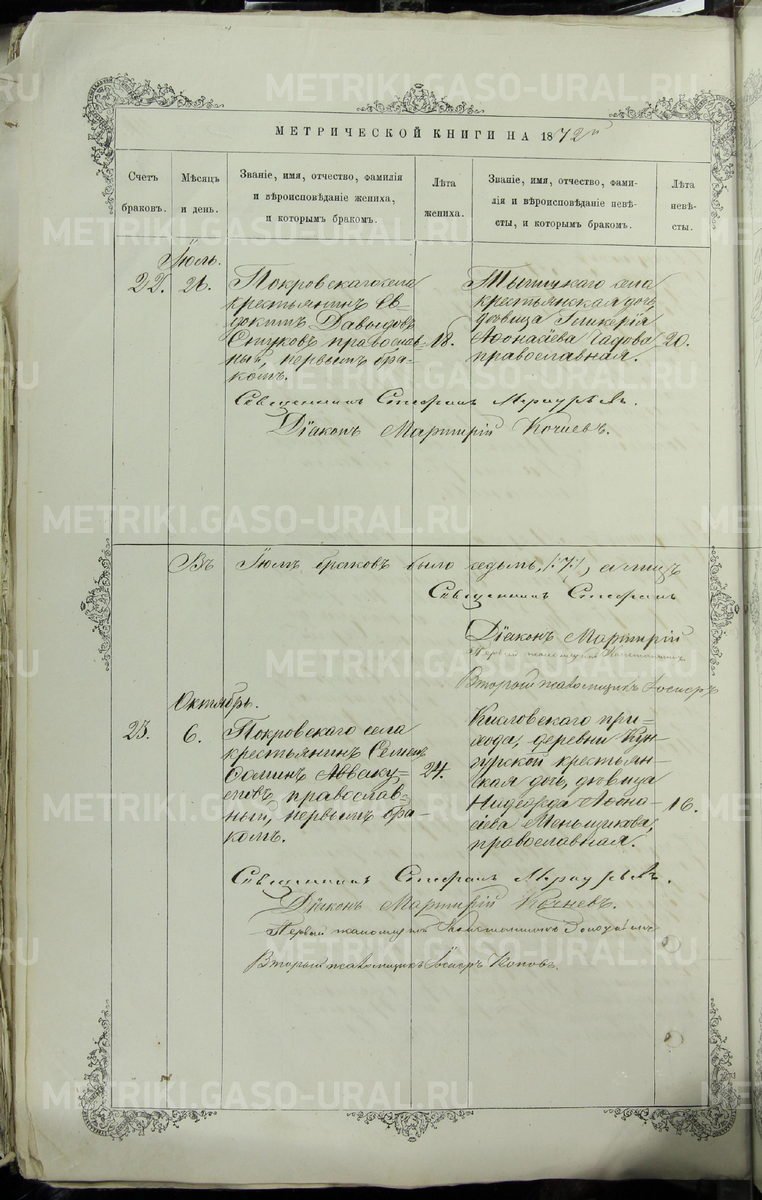 METRIKI.GASO-URAL.RU
МЕТРИЧЕСКОЙ КНИГИ НА 1872й
Счетъ браковъ.
Мѣсяцъ и день.
Званіе, имя, отчество, фамилія
и вѣроисповѣданіе жениха,
и которымъ бракомъ.
Лѣта жениха.
Званіе, имя, отчество, фами-
лія и вѣроисповѣданіе невѣ-
сты, и которымъ бракомъ.
Лѣта невѣ-
сты.
Іюль.
22.
Покровскаго села
крестьянинъ Ев-
докимъ Давыдовъ
православ-
ный, первымъ бра-
комъ.
18.
села
крестьянская дочь
дѣвица Гликерія
Афонасіева
православная.
20.
Священникъ Стефанъ
Діаконъ Мартирій Кочневъ.
Въ Іюлѣ браковъ было седьмъ, /:7:/,
Священникъ Стефанъ
Діаконъ Мартирій
Первый псаломщикъ Константинъ
Второй псаломщикъ Іосифъ
Октябрь.
23.
6.
Покровскаго села
крестьянинъ Семенъ
Ѳоминъ Авваку-
мовъ православ-
ный, первымъ бра-
комъ.
24.
Кисловскаго при-
хода, деревни Кун-
гурской крестьян-
ская дочь, дѣвица
Афона-
сіева Меньщикова,
православная.
16.
Священникъ Стефанъ
Діаконъ Мартирій Кочневъ.
Первый псаломщикъ Константинъ
Второй псаломщикъ Іосифъ Поповъ.